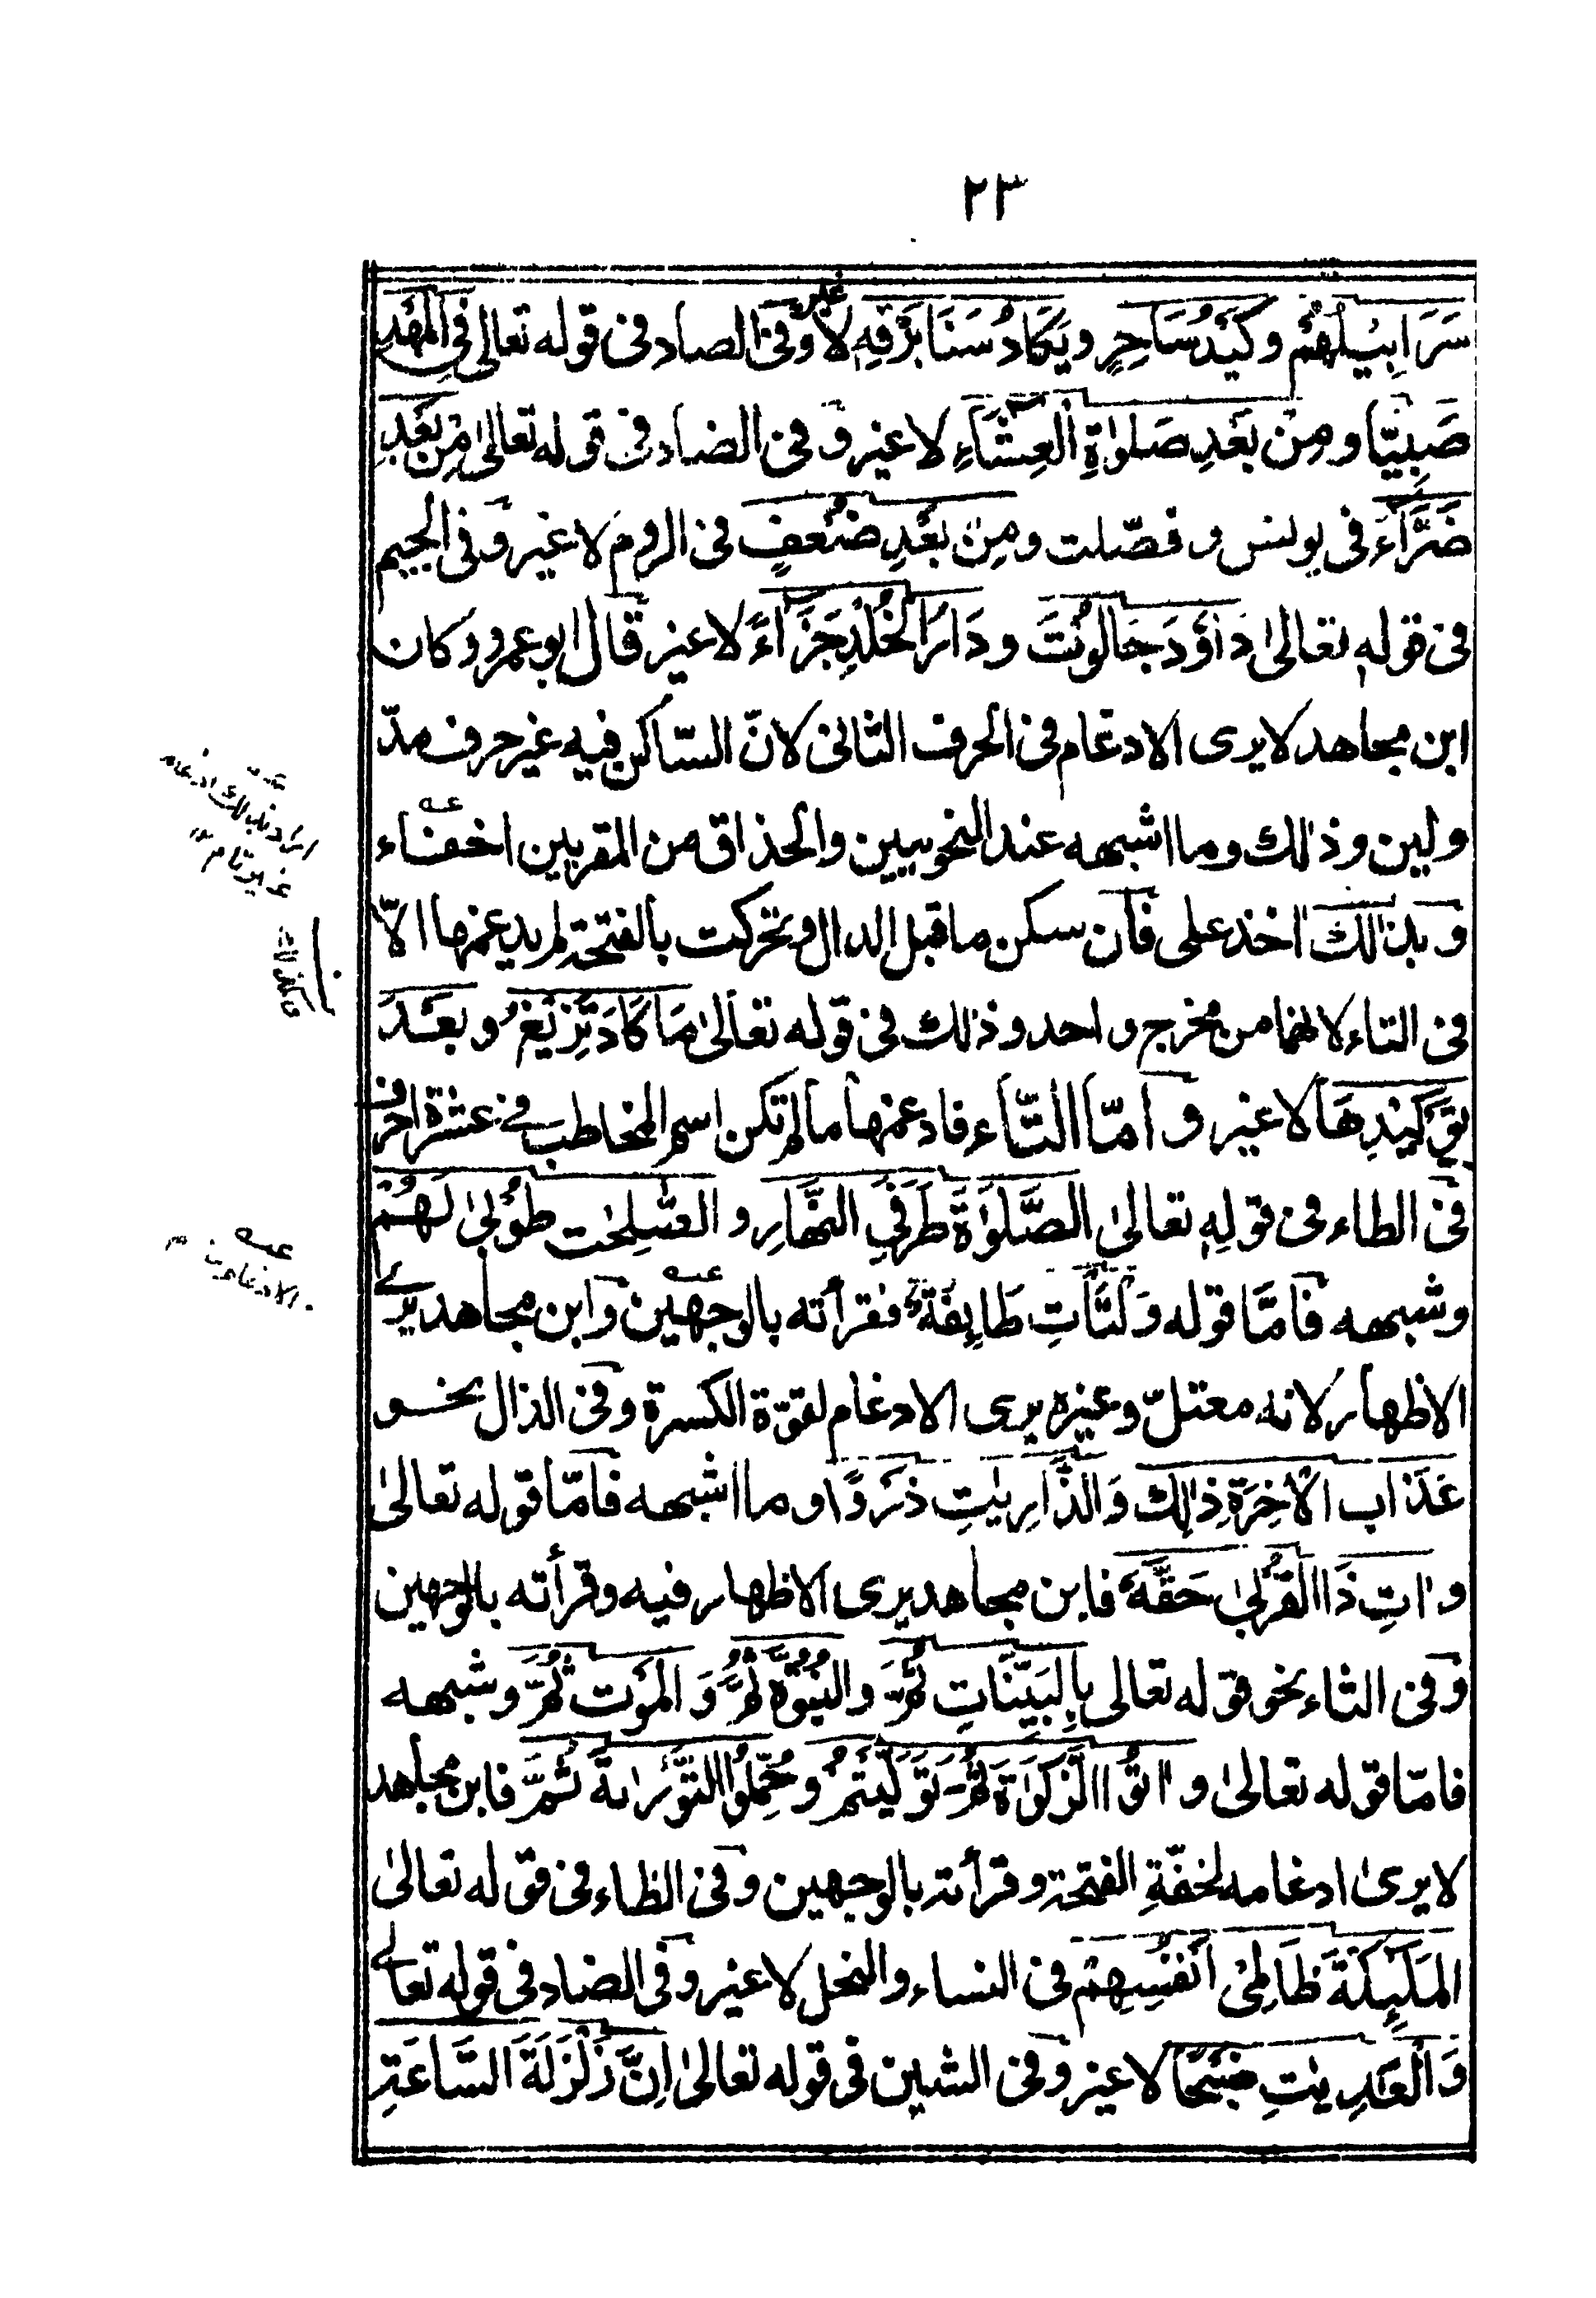 ٢٣
سَرَابِيلُهُمْ وكَيْدُ سَاحِرٍ ويَكَادُ سَنَا بَرْقِهٖ لا غير وفى الصاد فى قوله تعالى فِى الْمَهْدِ
صَبِيًّا ومِنْ بَعْدِ صَلوٰةِ الْعِشَآءِ لا غير وفى الضاد فى قوله تعالىٰ مِنْ بَعْدِ
ضَرَّآءَ فى يونس وفصّلت ومِنْ بَعْدِ ضُعْفٍ فى الروم لا غير وفى الجيم
فى قولهٖ تعالىٰ دَاؤدَ جَالُوْتَ ودَارُ الْخُلْدِ جَزَآءً لا غير قال ابو عمرو وكان
ابن مجاهد لا يرى الادغام فى الحرف الثانى لانّ السّاكن فيه غير حرف مدّ
ولين وذٰلك وما اشبهه عند النحويين والحذاق من المقريين اخفاء
وبذالك اخذ على فان سكن ما قبل الدال وتحركت بالفتحة لم يدغمها الّا
فى التاء لانهما من مخرج واحد وذٰلك فى قوله تعالىٰ مَا كَادَ تَزِيْغُ وبَعْدَ
تَوْكِيْدِهَا لا غير وامّا التّاء فادغمها مالم تكن اسم المخاطب فى عشرة احرف
فى الطاء فى قولِهٖ تعالىٰ الصَّلَوٰةَ طَرَفَىِ النَّهَارِ و الصّٰلِحٰت طُوْبىٰ لَهُمْ
وشبهه فَامَّا قوله وَلْتَأْتِ طَايِفَةٌ فقرأته بالوجهين وابن مجاهد يرى
الاظهار لانه معتلّ وغيره يرى الادغام لقوّة الكسرة وفى الذال نحو
عَذَاب الْاٰخِرَةِ ذٰلِكَ وَالذَّارِيٰتِ ذَرْوًا وما اشبهه فامّا قوله تعالىٰ
وَاٰتِ ذَا الْقُرْبىٰ حَقَّهٗ فابن مجاهد يرى الاظهار فيه وقرأته بالوجهين
وفى الثاء نحو قوله تعالى بِالْبَيِّنَاتِ ثُمَّ والنُّبُوَّةَ ثُمَّ وَ الْمَوْت ثُمَّ وشبهه
فامّا قوله تعالىٰ واٰتُوا الزَّكَوٰةَ ثُمَّ تَوَلَّيْتُمْ وحُمِّلُوا التَّوْرٰىةَ ثُمَّ فابن مجاهد
لا يرىٰ ادغامه لخفّةِ الفتحة وقرأته بالوجهين وفى الظاء فى قوله تعالىٰ
الْمَلٰٓئِكَةُ ظَالِمِىْ اَنْفُسِهِمْ فى النساء والنحل لا غير وفى الضاد فى قوله تعالے
وَالْعٰدِيٰتِ ضَبْحًا لا غير وفى الشين فى قوله تعالىٰ اِنَّ زَلْزَلَةَ السَّاعَةِ
عــه
غير تام ١٢
عــه
الادغام